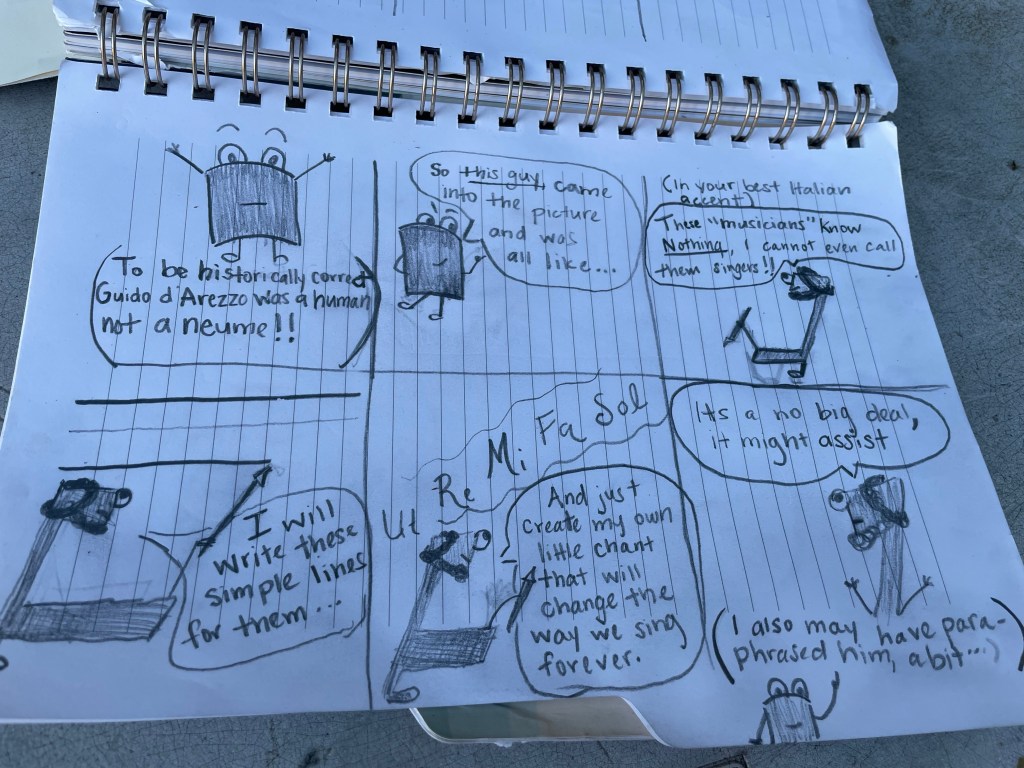 To be historically correct
Guido d'Arezzo was a human
not a neume!!
So this guy came
into the picture
and was
all like...
(In your best Italian
accent)
These "musicians" know
Nothing, I cannot even call
them singers!!
I will
write these
simple lines
for them...
Ut Re Mi Fa Sol
And just
create my own
little chant
that will
change the
way we sing
forever.
Its a no big deal,
it might assist
(I also may have para-
phrased him, a bit...)